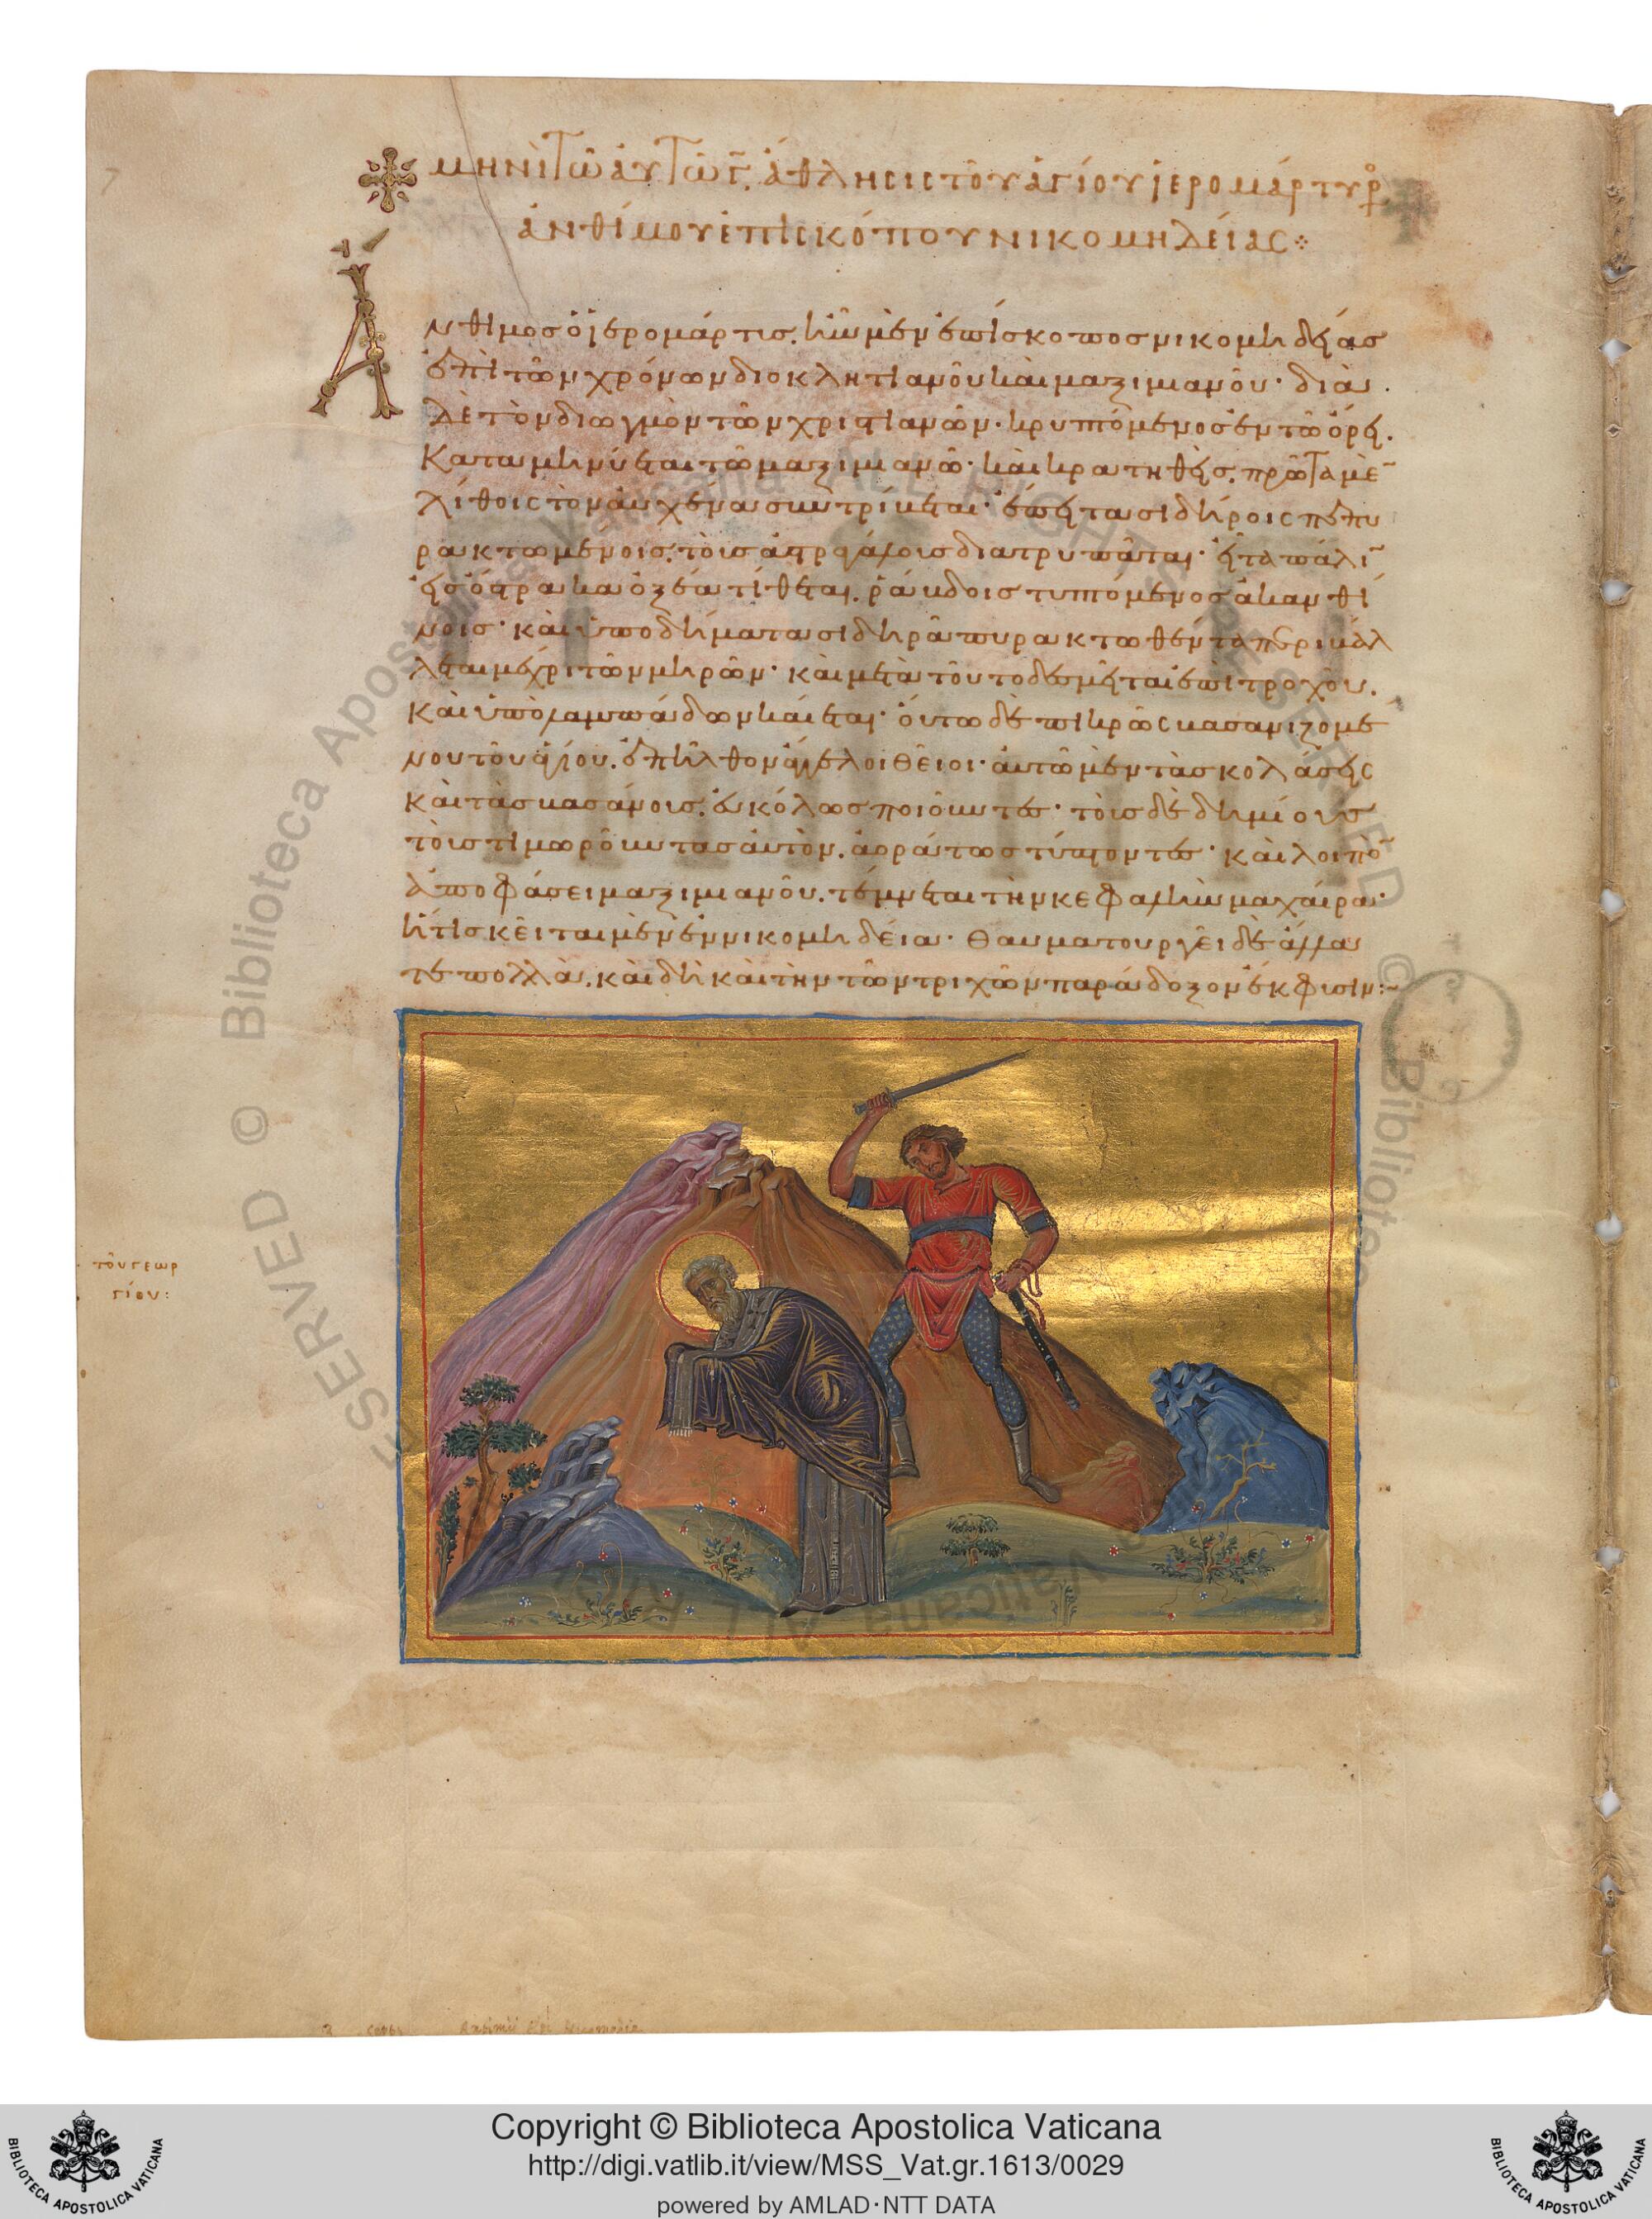 7
μηνὶ τῶ ἀυτῶ γ̄. ἄθλησις τοῦ ἁγίου ἱερομάρτυρ
ἀνθίμου ἐπισκόπου νικομηδείας
Ἄ
νθιμος ὁ ἱερομάρτις. ἦν μὲν ἐπίσκοπος νικομηδείας
ἐπὶ τῶν χρόνων διοκλητιανοῦ καὶ μαξιμιανοῦ· διὰ
δὲ τὸν διωγμὸν τῶν χριστιανῶν· κρυπτόμενος ἐν τῶ ὄρει.
Καταμηνύεται τῶ μαξιμιανῶ· καὶ κρατηθεὶς. πρῶτα μὲ
λίθοις τὸν αὐχένα συντρίβεται· ἔπειτα σιδήροις πεπυ
ρακτωμένοις. τοὺς ἀστραγάλους διατρυπᾶται· εἶτα πάλι
εἰς ὄστρακα ὀξέα τίθεται. ῥάβδοις τυπτόμενος ἀκανθί
νοις· καὶ ὑποδήματα σιδηρᾶ πυρακτωθέντα περιβάλ
λεται μέχρι τῶν μηρῶν· καὶ μετὰ τοῦτο δεσμεῖται ἐπὶ τροχοῦ.
Καὶ ὑπὸ λαμπάδων καίεται· οὕτω δὲ πικρῶς βασανιζομέ
νου τοῦ ἁγίου. ἐπῆλθον ἄγγελοι θεῖοι· αὐτῶ μὲν τὰς κολάσεις
Καὶ τὰς βασάνοις. εὐκόλως ποιοῦντες· τοὺς δὲ δημίους
τοὺς τιμωροῦντας αὐτὸν. ἀοράτως τύπτοντες· καὶ λοιπὸ
ἀποφάσει μαξιμιανοῦ. τέμνεται τὴν κεφαλὴν μαχαίρα·
ἥτις κεῖται μὲν ἐν νικομηδεία· θαυματουργεῖ δὲ ἄλλα
τε πολλὰ. καὶ δὴ καὶ τὴν τῶν τριχῶν παράδοξον ἔκφισιν:~
τοῦ γεωρ
γίου:
BIBLIOTECA APOSTOLICA VATICANA
Copyright © Biblioteca Apostolica Vaticana
http://digi.vatlib.it/view/MSS_Vat.gr.1613/0029
powered by AMLAD·NTT DATA
BIBLIOTECA APOSTOLICA VATICANA